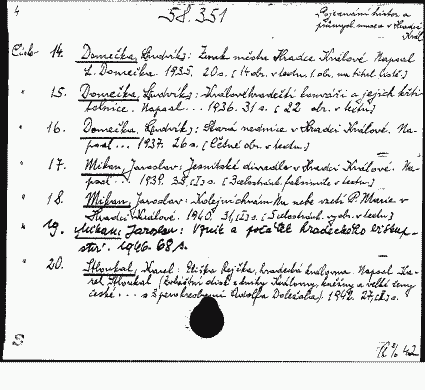 4 58.351 Poznání histor. a
průmysl. musea v Hradci
Král.
Číslo 14. Domečka, Ludvík: Znak města Hradce Králové. Napsal
L. Domečka. 1935. 20 s. [14 obr. v textu, 1 obr. na titul. listě.]
" 15. Domečka, Ludvík: Královéhradečtí konváři a jejich křti-
telnice. Napsal ... 1936. 31 s. [22 obr. v textu]
" 16. Domečka, Ludvík: Stará radnice v Hradci Králové. Na-
psal ... 1937. 26 s. [Četné obr. v textu.]
" 17. Mikan, Jaroslav: Jesuitské divadlo v Hradci Králové. Na-
psal ... 1939. 38, [I] s. [3 celostránk. faksimile v textu]
" 18. Mikan, Jaroslav: Kolejní chrám Na nebe vzetí P. Marie v
Hradci Králové. 1940. 31, [I] s. [5 celostránk. vyobr. v textu.]
" 19. Mikan, Jaroslav: Vznik a počátek hradeckého biskup-
ství. 1946. 68 s.
" 20. Stloukal, Karel: Eliška Rejčka, hradecká královna. Napsal Ka-
rel Stloukal (Zvláštní otisk z knihy Královny, kněžny a velké ženy
české ... s perokresbami Adolfa Doležala). 1942. 27, [I] s.
S
42